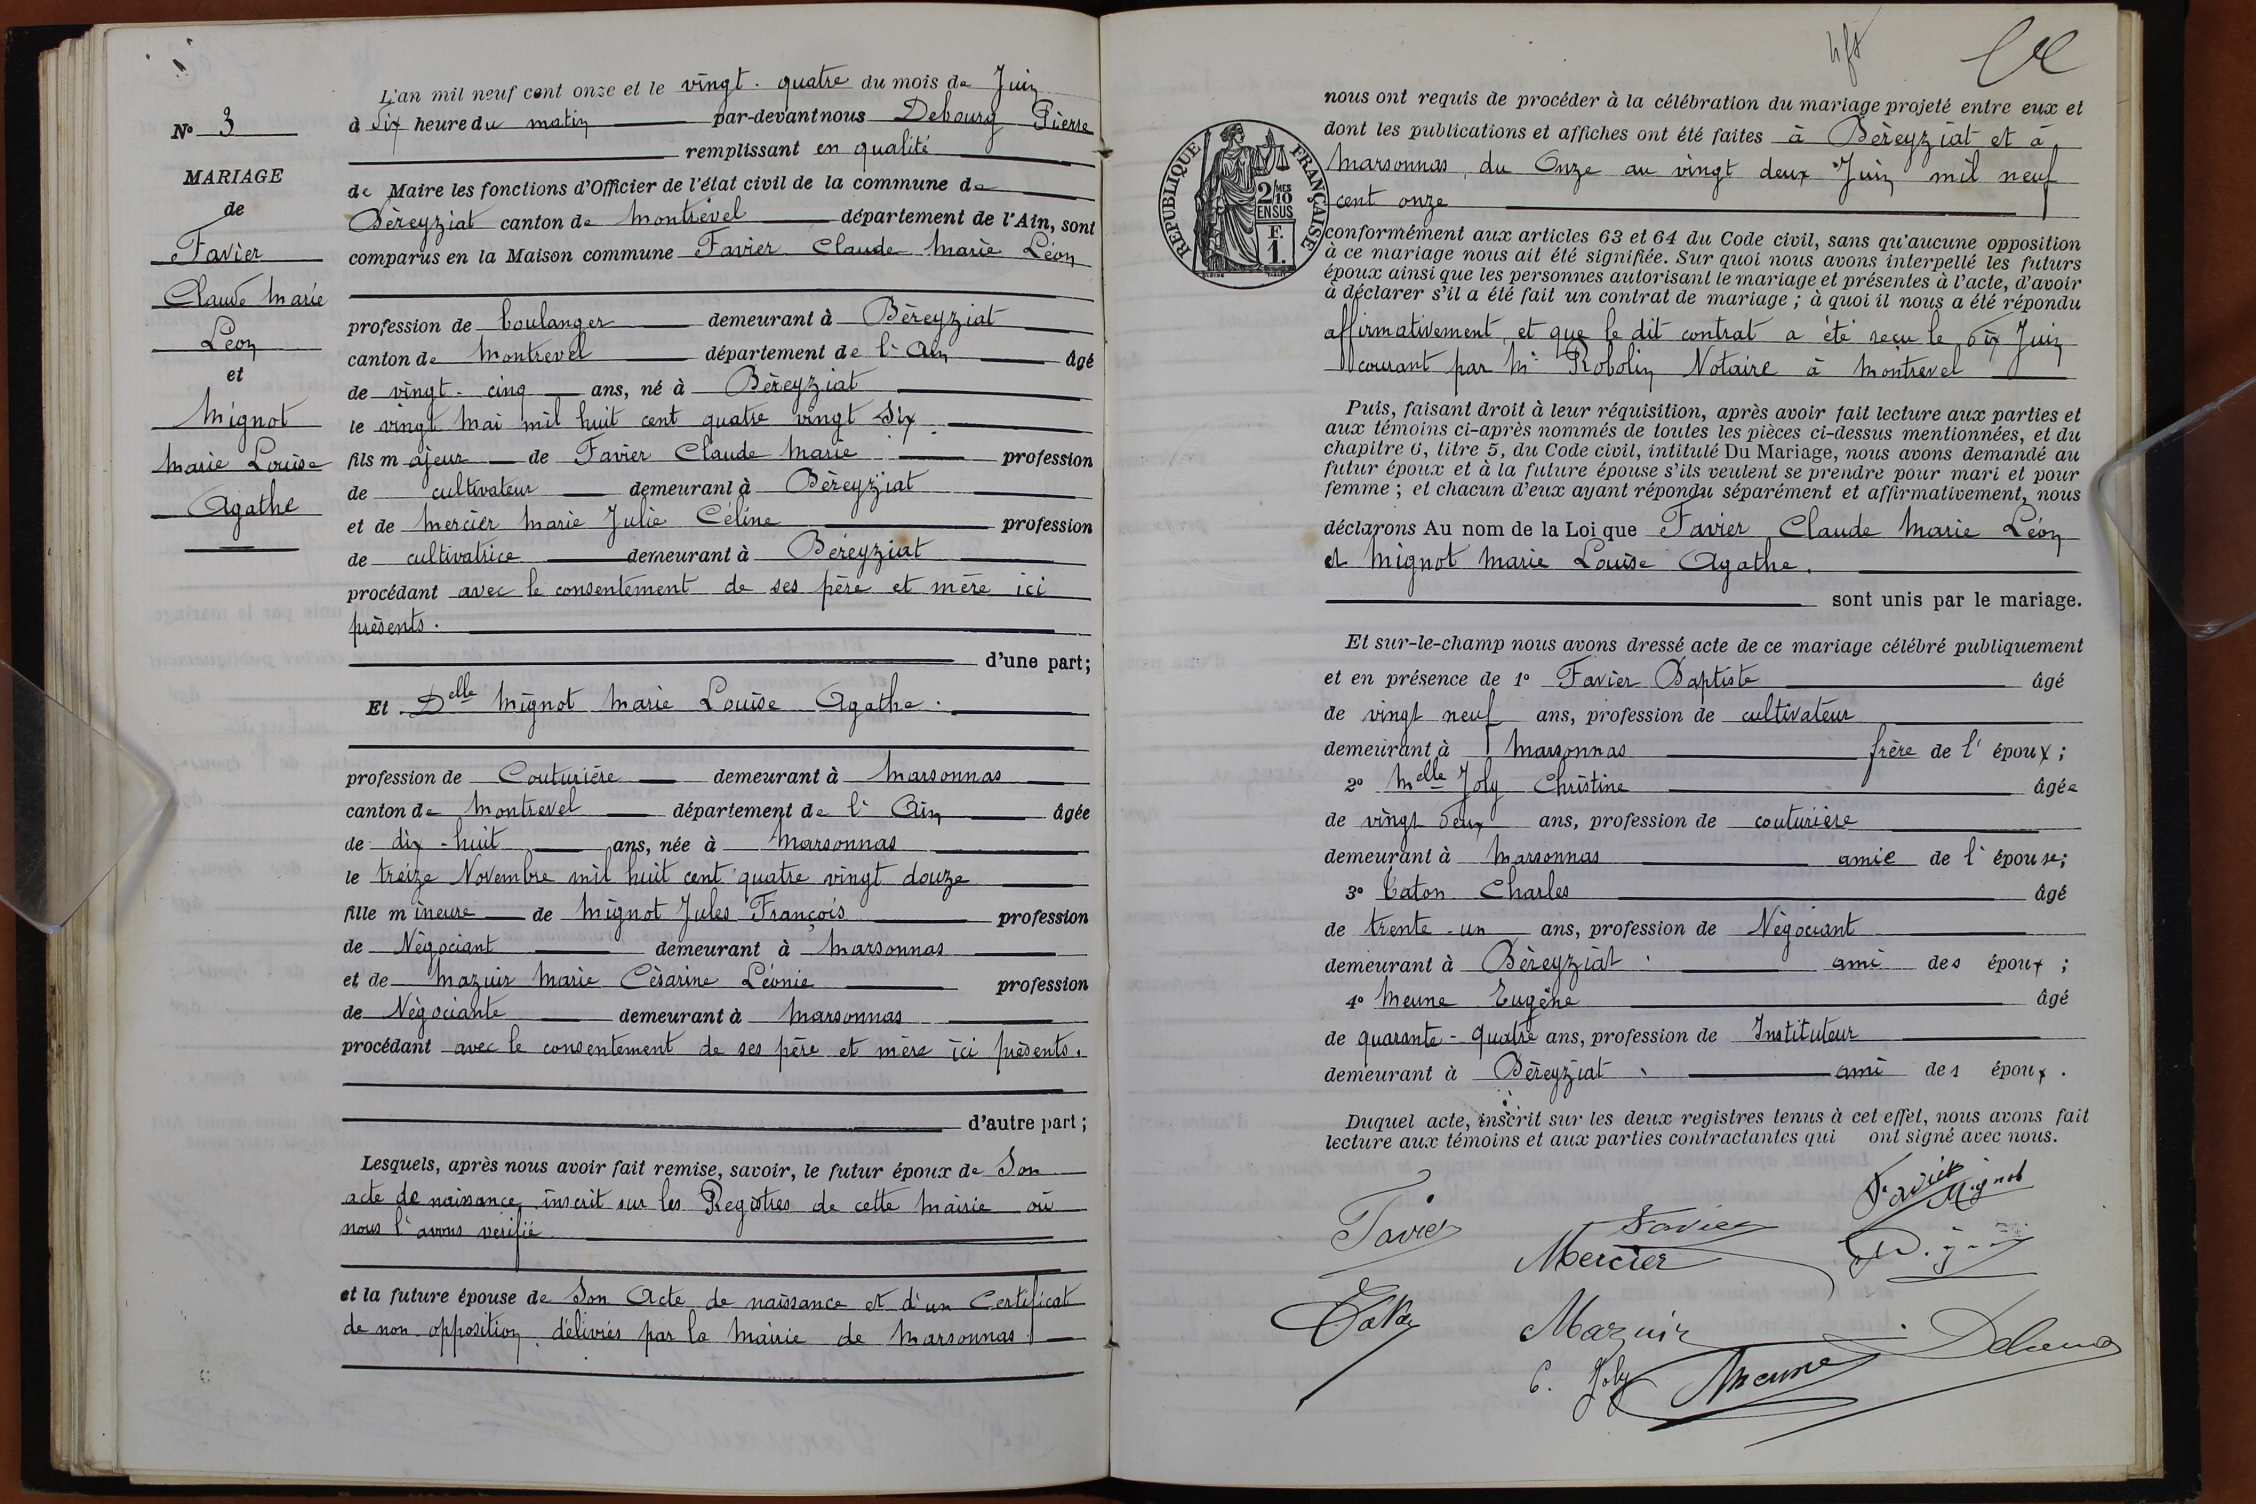 L'an mil neuf cent onze et le vingt-quatre du mois de Juin
à Six heure du matin par-devant nous Debourg Pierre
remplissant en qualité
de Maire les fonctions d'Officier de l'état civil de la commune de
Béreyziat canton de Montrevel département de l'Ain, sont
comparus en la Maison commune Favier Claude Marie Léon
profession de boulanger demeurant à Béreyziat
canton de Montrevel département de l'Ain âgé
de vingt-cinq ans, né à Béreyziat
le vingt Mai mil huit cent quatre vingt Six
fils majeur de Favier Claude Marie profession
de cultivateur demeurant à Béreyziat
et de Mercier Marie Julie Céline profession
de cultivatrice demeurant à Béreyziat
procédant avec le consentement de ses père et mère ici
présents.
d'une part;
Et Delle Mignot Marie Louise Agathe.
profession de Couturière demeurant à Marsonnas
canton de Montrevel département de l'Ain âgée
de dix-huit ans, née à Marsonnas
le treize Novembre mil huit cent quatre vingt douze
fille mineure de Mignot Jules François profession
de Négociant demeurant à Marsonnas
et de Mazuir Marie Césarine Léonie profession
de Négociante demeurant à Marsonnas
procédant avec le consentement de ses père et mère ici présents.
d'autre part;
Lesquels, après nous avoir fait remise, savoir, le futur époux de Son
acte de naissance inscrit sur les Registres de cette Mairie où
nous l'avons vérifié
et la future épouse de Son Acte de naissance et d'un Certificat
de non opposition délivrés par la Mairie de Marsonnas
No 3
MARIAGE
de
Favier
Claude Marie
Léon
et
Mignot
Marie Louise
Agathe
nous ont requis de procéder à la célébration du mariage projeté entre eux et
dont les publications et affiches ont été faites à Béreyziat et à
Marsonnas, du Onze au vingt deux Juin mil neuf
cent onze
conformément aux articles 63 et 64 du Code civil, sans qu'aucune opposition
à ce mariage nous ait été signifiée. Sur quoi nous avons interpellé les futurs
époux ainsi que les personnes autorisant le mariage et présentes à l'acte, d'avoir
à déclarer s'il a été fait un contrat de mariage ; à quoi il nous a été répondu
affirmativement, et que le dit contrat a été reçu le Six Juin
courant par Me Robolin Notaire à Montrevel
Puis, faisant droit à leur réquisition, après avoir fait lecture aux parties et
aux témoins ci-après nommés de toutes les pièces ci-dessus mentionnées, et du
chapitre 6, titre 5, du Code civil, intitulé Du Mariage, nous avons demandé au
futur époux et à la future épouse s'ils veulent se prendre pour mari et pour
femme ; et chacun d'eux ayant répondu séparément et affirmativement, nous
déclarons Au nom de la Loi que Favier Claude Marie Léon
et Mignot Marie Louise Agathe.
sont unis par le mariage.
Et sur-le-champ nous avons dressé acte de ce mariage célébré publiquement
et en présence de 1o Favier Baptiste âgé
de vingt neuf ans, profession de cultivateur
demeurant à Marsonnas frère de l'époux ;
2o Melle Joly Christine âgée
de vingt deux ans, profession de couturière
demeurant à Marsonnas amie de l'épouse;
3o Caton Charles âgé
de trente-un ans, profession de Négociant
demeurant à Béreyziat ami des époux ;
4o Meune Eugène âgé
de quarante-quatre ans, profession de Instituteur
demeurant à Béreyziat ami des époux.
Duquel acte, inscrit sur les deux registres tenus à cet effet, nous avons fait
lecture aux témoins et aux parties contractantes qui ont signé avec nous.
Favier Mignot
Favier
Favier
Mercier
Mazuir
C. Joly
Meune
RÉPUBLIQUE FRANÇAISE
2/10 MES
EN SUS
F.
1.